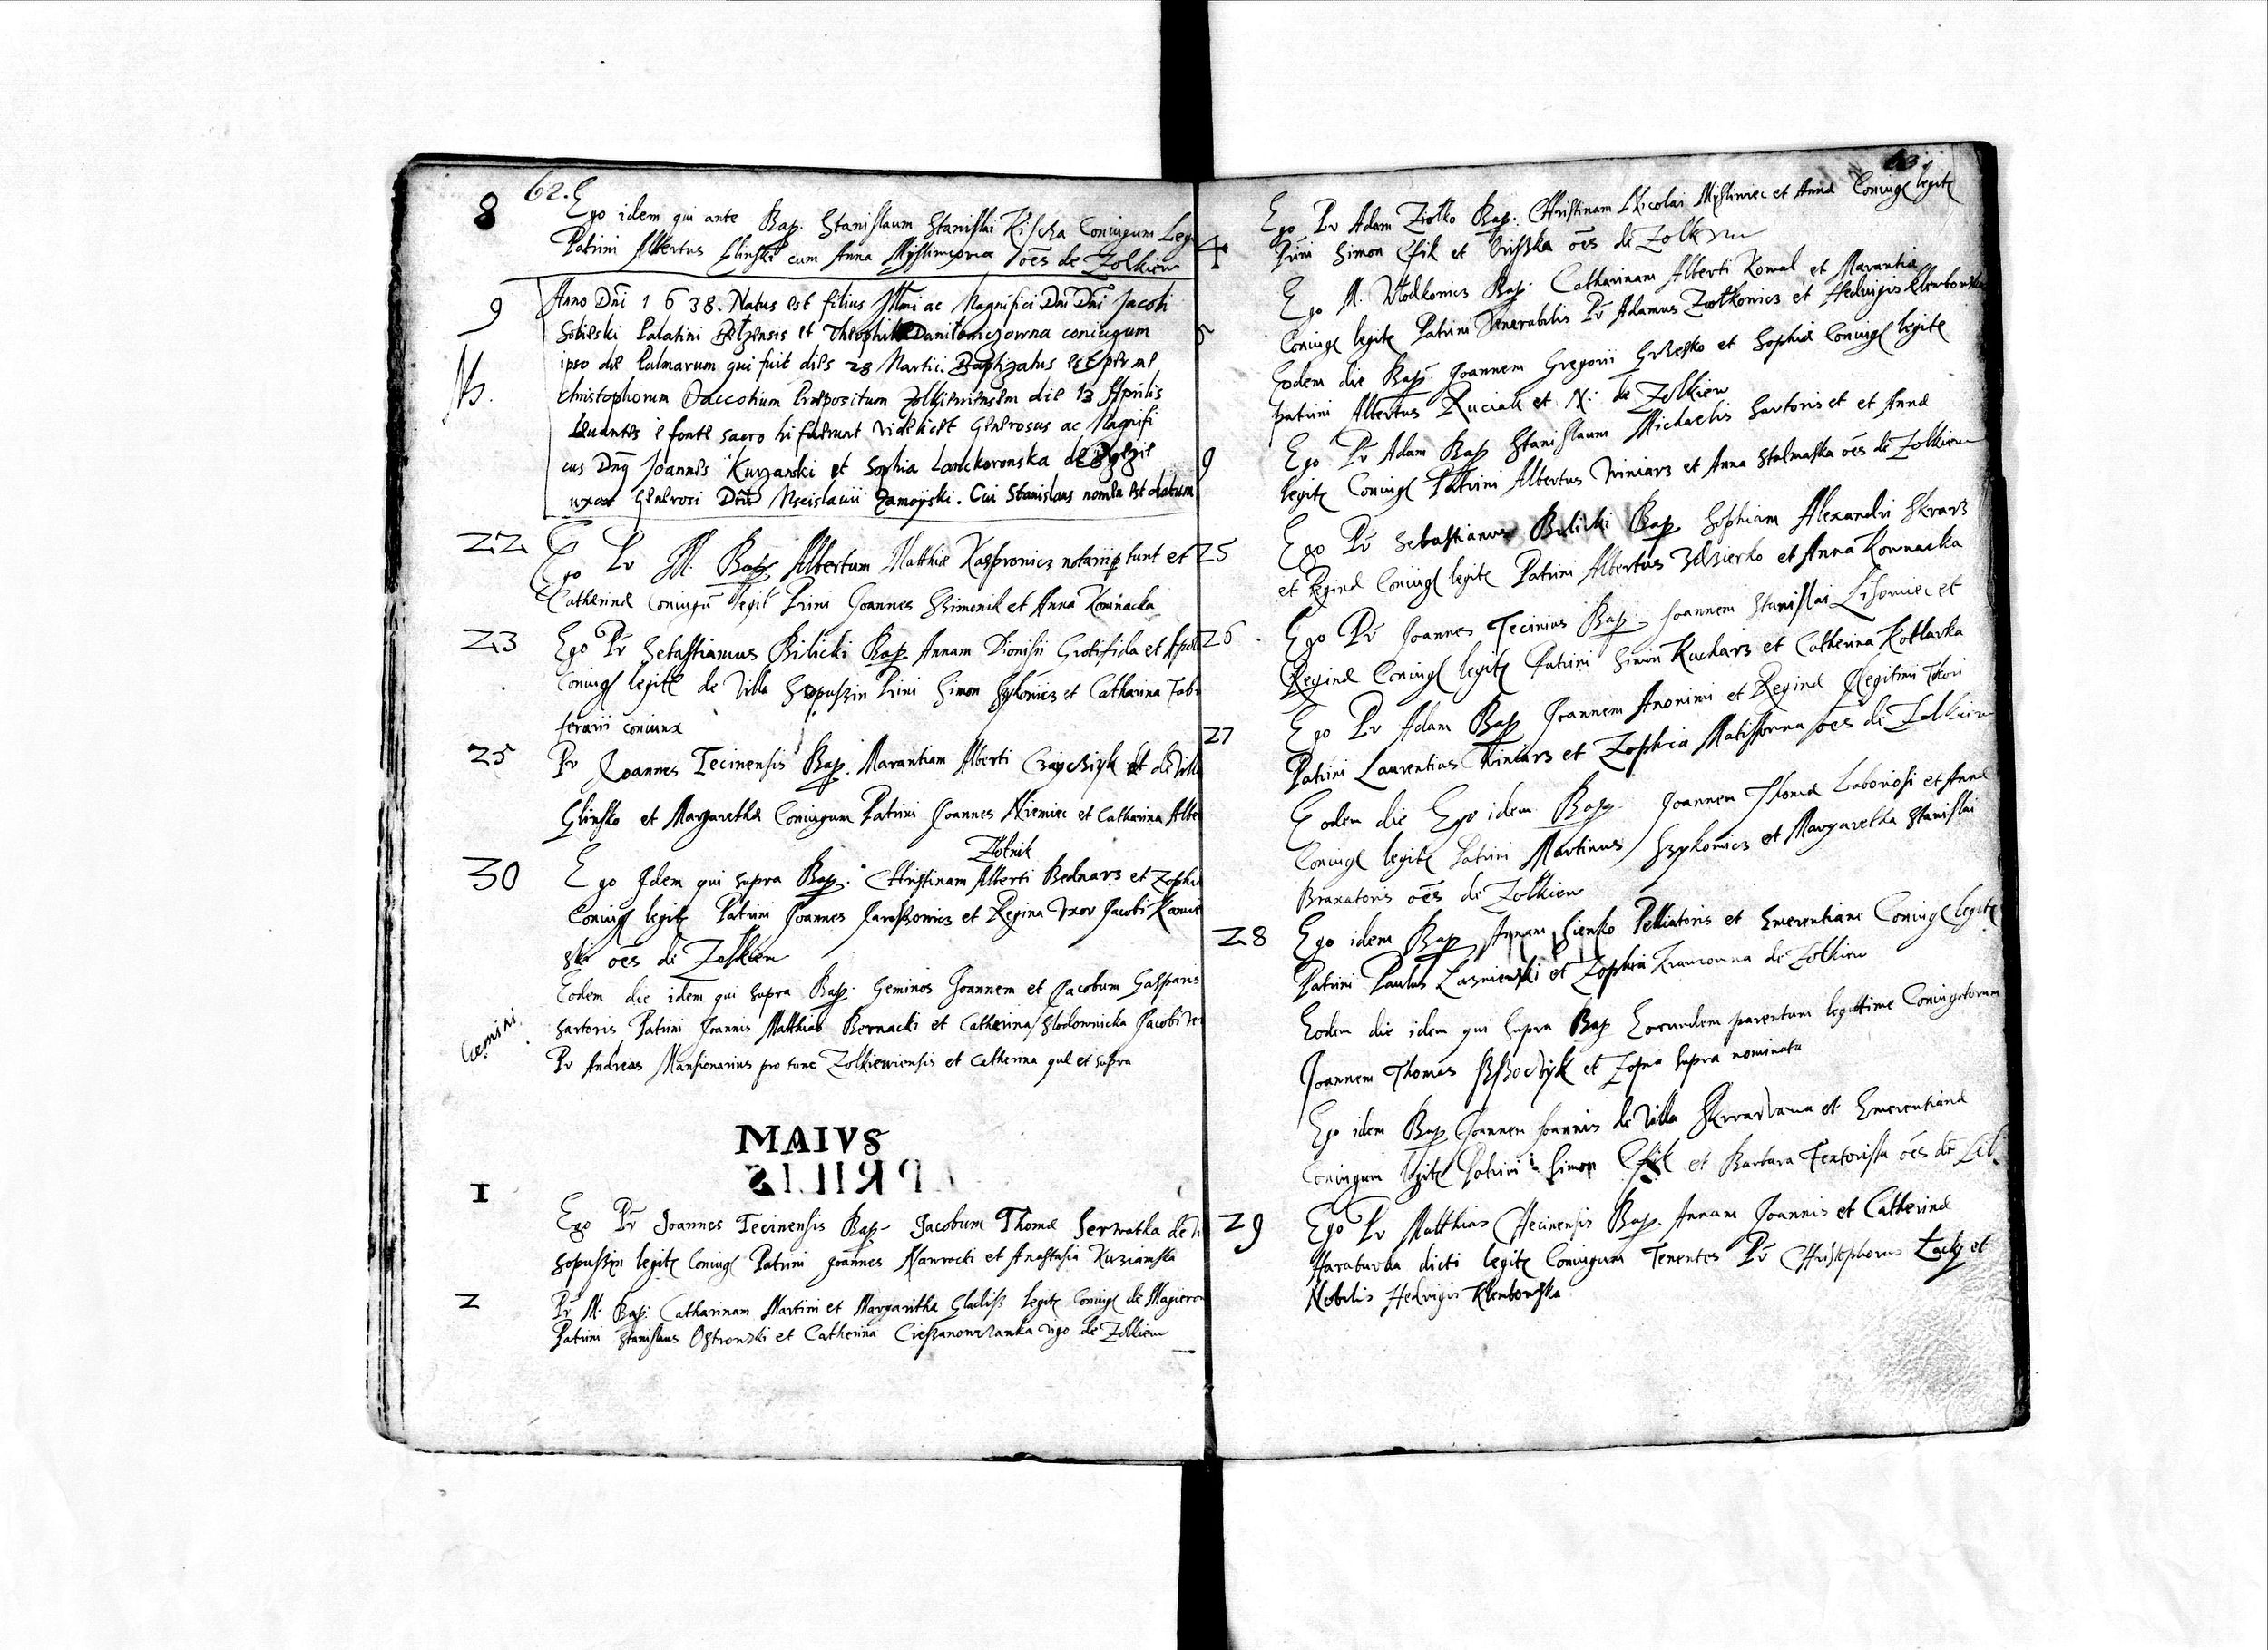 62.
8 Ego idem qui ante Bap. Stanislaum Stanislai Kiska Coniugum Leg
Patrini Albertus Glinski cum Anna Mystimcovia oēs de Zolkiew
9 Anno Dni 1638. Natus est filius Illmi ac Magnifici Dni Dni Jacobi
Sobieski Palatini Belzensis et Theophila Daniłowiczowna coniugum
ipso die Palmarum qui fuit dies 28 Martii. Baptizatus est per me
Christophorum Daccotium Praepositum Zolkieviensem die 13 Aprilis
Levantes e fonte sacro hi fuerunt videlicet Generosus ac Magnifi
cus Dnq Joannes Kurzanski et Sophia Lanckoronska de Brzezie
uxor Generosi Dni Mscislavii Zamoyski. Cui Stanislaus nomen est datum
22 Ego Pr M. Bap Albertum Matthiæ Kaspronicz notarij tunt et
Catherinæ Coniugū legit Prini Joannes Szimonik et Anna Kownacka
23 Ego Pr Sebastianus Bilicki Bap Annam Dionisii Grotifida et
Coniug legitæ de Villa Sopuszin Prini Simon Szylonicz et Catharina Fab
ferarii coniunx
25 Pr Joannes Tecinensis Bap. Marantiam Alberti et de Villa
Glinsko et Margarethæ Coniugum Patrini Joannes Niemiec et Catharina Albe
Złotnik
30 Ego Idem qui supra Bap. Christinam Alberti Bednarz et Zophia
Coniug legitæ Patrini Joannes Jaroszonicz et Regina Uxor Jacobi
ski oēs de Zolkiew
Eodem die idem qui supra Bap. Geminos Joannem et Jacobum Gasparis
Gemini. Sartoris Patrini Joannis Matthias Bernacki et Catherina Slodownicka Jacobi ver
Pr Andreas Mansionarius pro tunc Zolkieviensis et Catherina quæ et supra
MAIVS
APRILIS
1 Ego Pr Joannes Tecinensis Bap Jacobum Thomæ Serwatka de Vi
Sopuszin legitæ Coniug Patrini Joannes Nawrocki et Anastasia Kuziamska
2 Pr M. Bap: Catharinam Martini et Margarithæ Gladisz legitæ Coniug de Magierow
Patrini Stanislaus Ostrowski et Catherina Cieszanowzanka Virgo de Zolkiew
63
4 Ego Pr Adam Ziołko Bap. Christinam Nicolai Mystiwiec et Annæ Coniug legitæ
Prini Simon Cfik et Orisska oēs de Zolkiew
5 Ego M. Wodkonicz Bap. Catharinam Alberti Kowal et Marantia
Coniug legitæ Patrini Venerabilis Pr Adamus Ziołkonicz et Hedvigis Klembowska
Eodem die Bap. Joannem Gregorii Grzesko et Sophiæ Coniug legitæ
patrini Albertus Kuciak et N: de Zolkiew
9 Ego Pr Adam Bap Stanislaum Michaelis Sartoris et et Annæ
legitæ Coniug Patrini Albertus Winiarz et Anna Stalmaska oēs de Zolkiew
25 Ego Pr Sebastianus Bilicki Bap Sophiam Alexandri Skrarz
et Reginæ Coniug legitæ Patrini Albertus et Anna Kownacka
26. Ego Pr Joannes Tecinius Bap. Joannem Stanislai Lisowiec et
Reginæ Coniug legitæ Patrini Simon Kucharz et Catherina Kotlarka
27 Ego Pr Adam Bap Joannem Anonimi et Reginæ legitimi Thori
Patrini Laurentius Winiarz et Zophia Matissowna oēs de Zolkiew
Eodem die Ego idem Bap. Joannem Thomæ Laboriosi et Annæ
Coniug legitæ Patrini Martinus Szykonicz et Margaretha Stanislai
Braxatoris oēs de Zolkiew
28 Ego idem Bap Agnam Sienko Pelliatoris et Emerentiane Coniug legitæ
Patrini Paulus Lasniewski et Zophia Krawcowna de Zolkiew
Eodem die idem qui supra Bap Eorundem parentum legittime Coniugatorum
Joannem Thomas et Zofia supra nominata
Ego idem Bap Joannem Joannis de Villa Skwarzawa et Emerentianæ
Coniugum legitæ Patrini Simon Cfik et Barbara Textorissa oēs de
29 Ego Pr Matthias Thecinensis Bap. Annam Joannis et Catherinæ
Haraburda dicti legitæ Coniugum Tenentes Pr Christophorus Łacky et
Nobilis Hedvigis Klembowska